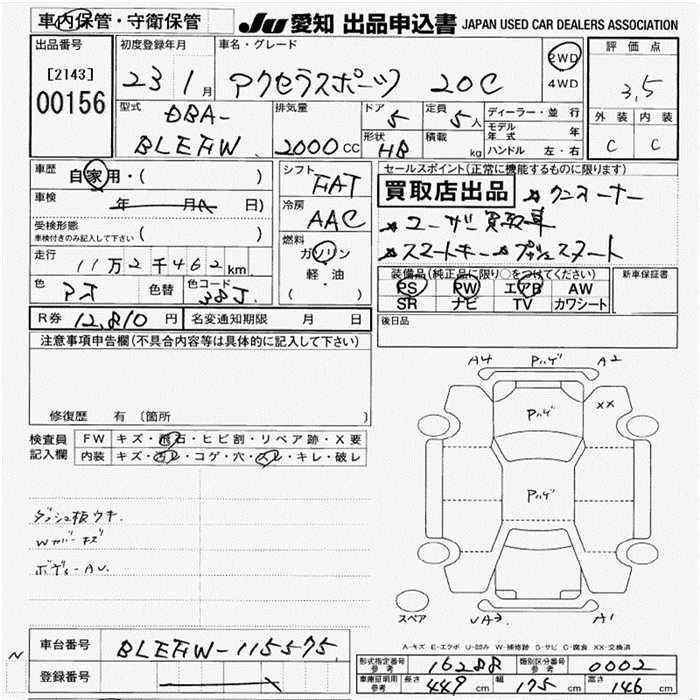 車内保管・守衛保管 JU 愛知 出品申込書 JAPAN USED CAR DEALERS ASSOCIATION
出品番号 初度登録年月 車名・グレード 評価点
[2143] 23 1月 アクセラスポーツ 20C 2WD 3.5
00156 4WD
型式 排気量 ドア 定員 ディーラー・並行 外装 内装
DBA- 5 5人 モデル年式 年
BLEFW 2000cc 形状 HB 積載 kg ハンドル 左・右 C C
車歴 自家用・( ) シフト FAT セールスポイント(正常に機能するものに限ります)
車検 年 月 日) 冷房 買取店出品 ☆ワンオーナー
受検形態 AAC ☆ユーザー買取車
車検付きのみ記入して下さい ( ) 燃料 ☆スマートキー プッシュスタート
走行 11万2千462km ガソリン
軽・油
( )
色 色替 色コード 38J 装備品(純正品に限り○をつけてください) 新車保証書
PS PW エアB AW
SR ナビ TV カワシート
R券 12,810円 名変通知期限 月 日 後日品
注意事項申告欄(不具合内容等は具体的に記入して下さい)
A4 Pハゲ A2
Pハゲ XX
修復歴 有 〔箇所 〕
検査員 FW キズ・飛石・ヒビ割・リペア跡・X要
記入欄 内装 キズ・汚レ・コゲ・穴・スレ・キレ・破レ
Pハゲ
ダッシュ板ウキ.
Wカバーキズ
ボディーAU.
スペア A3 A1
A-キズ E-エクボ U-凹み W-補修跡 S-サビ C-腐食 XX-交換済
N 車台番号 BLEFW-115575
登録番号
形式指定番号参考 16288 類別区分番号参考 0002
車庫証明用参考 長さ 449cm 幅 175cm 高さ 146cm